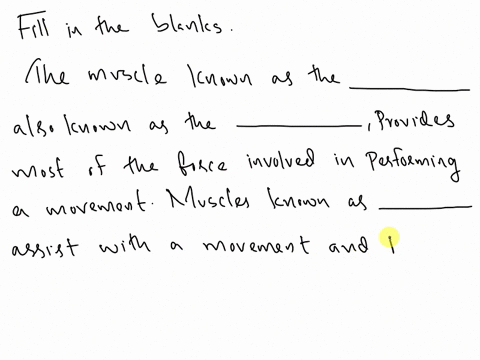 Fill in the blanks.
The muscle known as the ________
also known as the ________, Provides
most of the force involved in Performing
a movement. Muscles known as ________
assist with a movement and